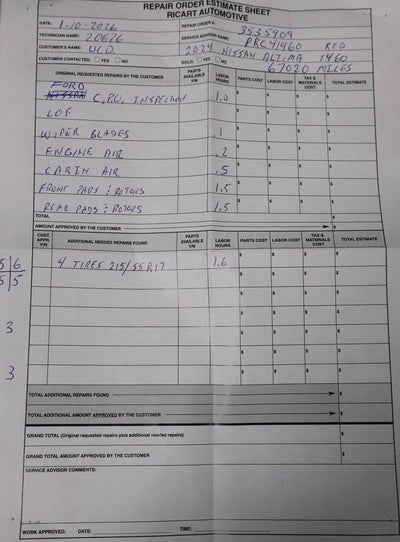 REPAIR ORDER ESTIMATE SHEET
RICART AUTOMOTIVE
DATE: 1-10-2026 REPAIR ORDER #: 3535909
TECHNICIAN NAME: 20626 SERVICE ADVISOR NAME: PRC41960 RED
CUSTOMER'S NAME: U.C.D. 2024 NISSAN ALTIMA T460
CUSTOMER CONTACTED: YES NO SOLD: YES NO 67020 MILES
ORIGINAL REQUESTED REPAIRS BY THE CUSTOMER PARTS AVAILABLE Y/N LABOR HOURS PARTS COST LABOR COST TAX & MATERIALS COST TOTAL ESTIMATE
FORD
NISSAN C.P.O. INSPECTION 1.0 $ $ $ $
LOF $ $ $ $
WIPER BLADES .1 $ $ $ $
ENGINE AIR .2 $ $ $ $
CABIN AIR .5 $ $ $ $
FRONT PADS & ROTORS 1.5 $ $ $ $
REAR PADS & ROTORS 1.5 $ $ $ $
TOTAL $
AMOUNT APPROVED BY THE CUSTOMER $
CUST. APPR. Y/N ADDITIONAL NEEDED REPAIRS FOUND PARTS AVAILABLE Y/N LABOR HOURS PARTS COST LABOR COST TAX & MATERIALS COST TOTAL ESTIMATE
5 6 4 TIRES 215/55R17 1.6 $ $ $ $
5 5 $ $ $ $
3 $ $ $ $
3 $ $ $ $
TOTAL ADDITIONAL REPAIRS FOUND $
TOTAL ADDITIONAL AMOUNT APPROVED BY THE CUSTOMER $
GRAND TOTAL (Original requested repairs plus additional needed repairs) $
GRAND TOTAL AMOUNT APPROVED BY THE CUSTOMER $
SERVICE ADVISOR COMMENTS:
WORK APPROVED: DATE: TIME: